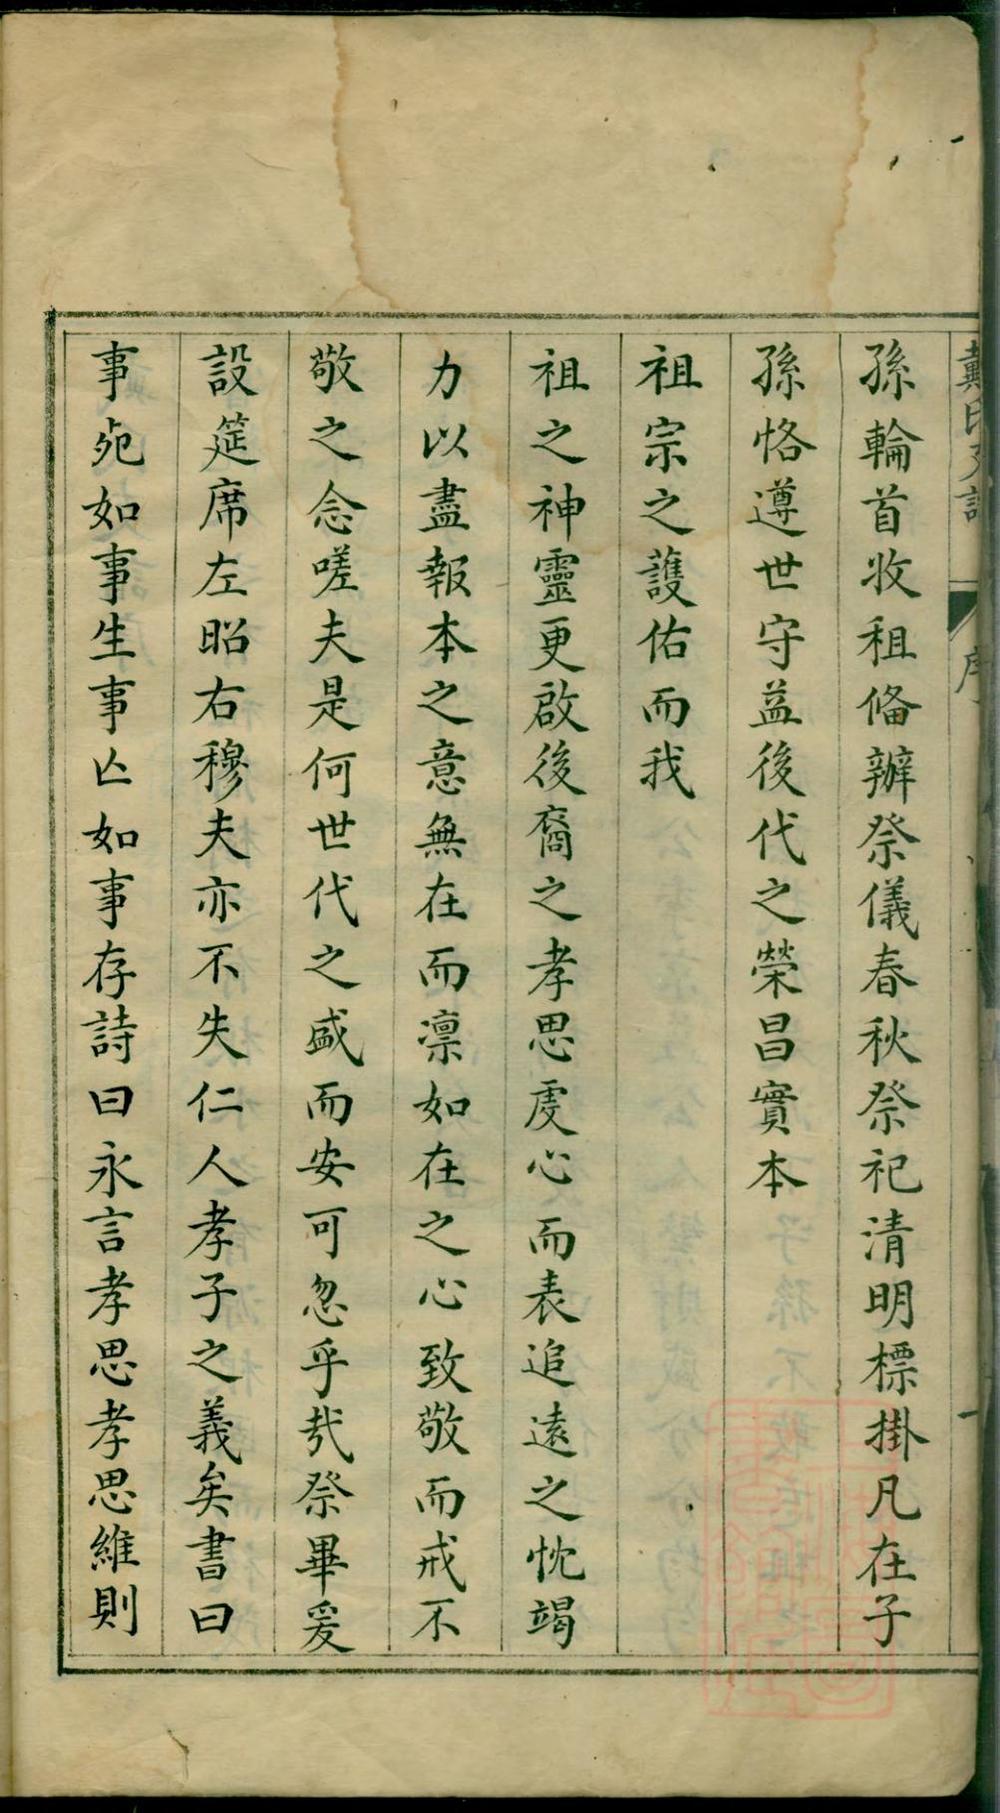 戴氏
序
孫輪首收租俻辦祭儀春秋祭祀清明標掛凡在子
孫恪遵世守益後代之榮昌實本
祖宗之護佑而我
祖之神靈更啟後裔之孝思虔心而表追遠之忱竭
力以盡報本之意無在而凛如在之心致敬而戒不
敬之念嗟夫是何世代之盛而安可忽乎㢤祭畢爰
設筵席左昭右穆夫亦不失仁人孝子之義矣書曰
事死如事生事亡如事存詩曰永言孝思孝思維則